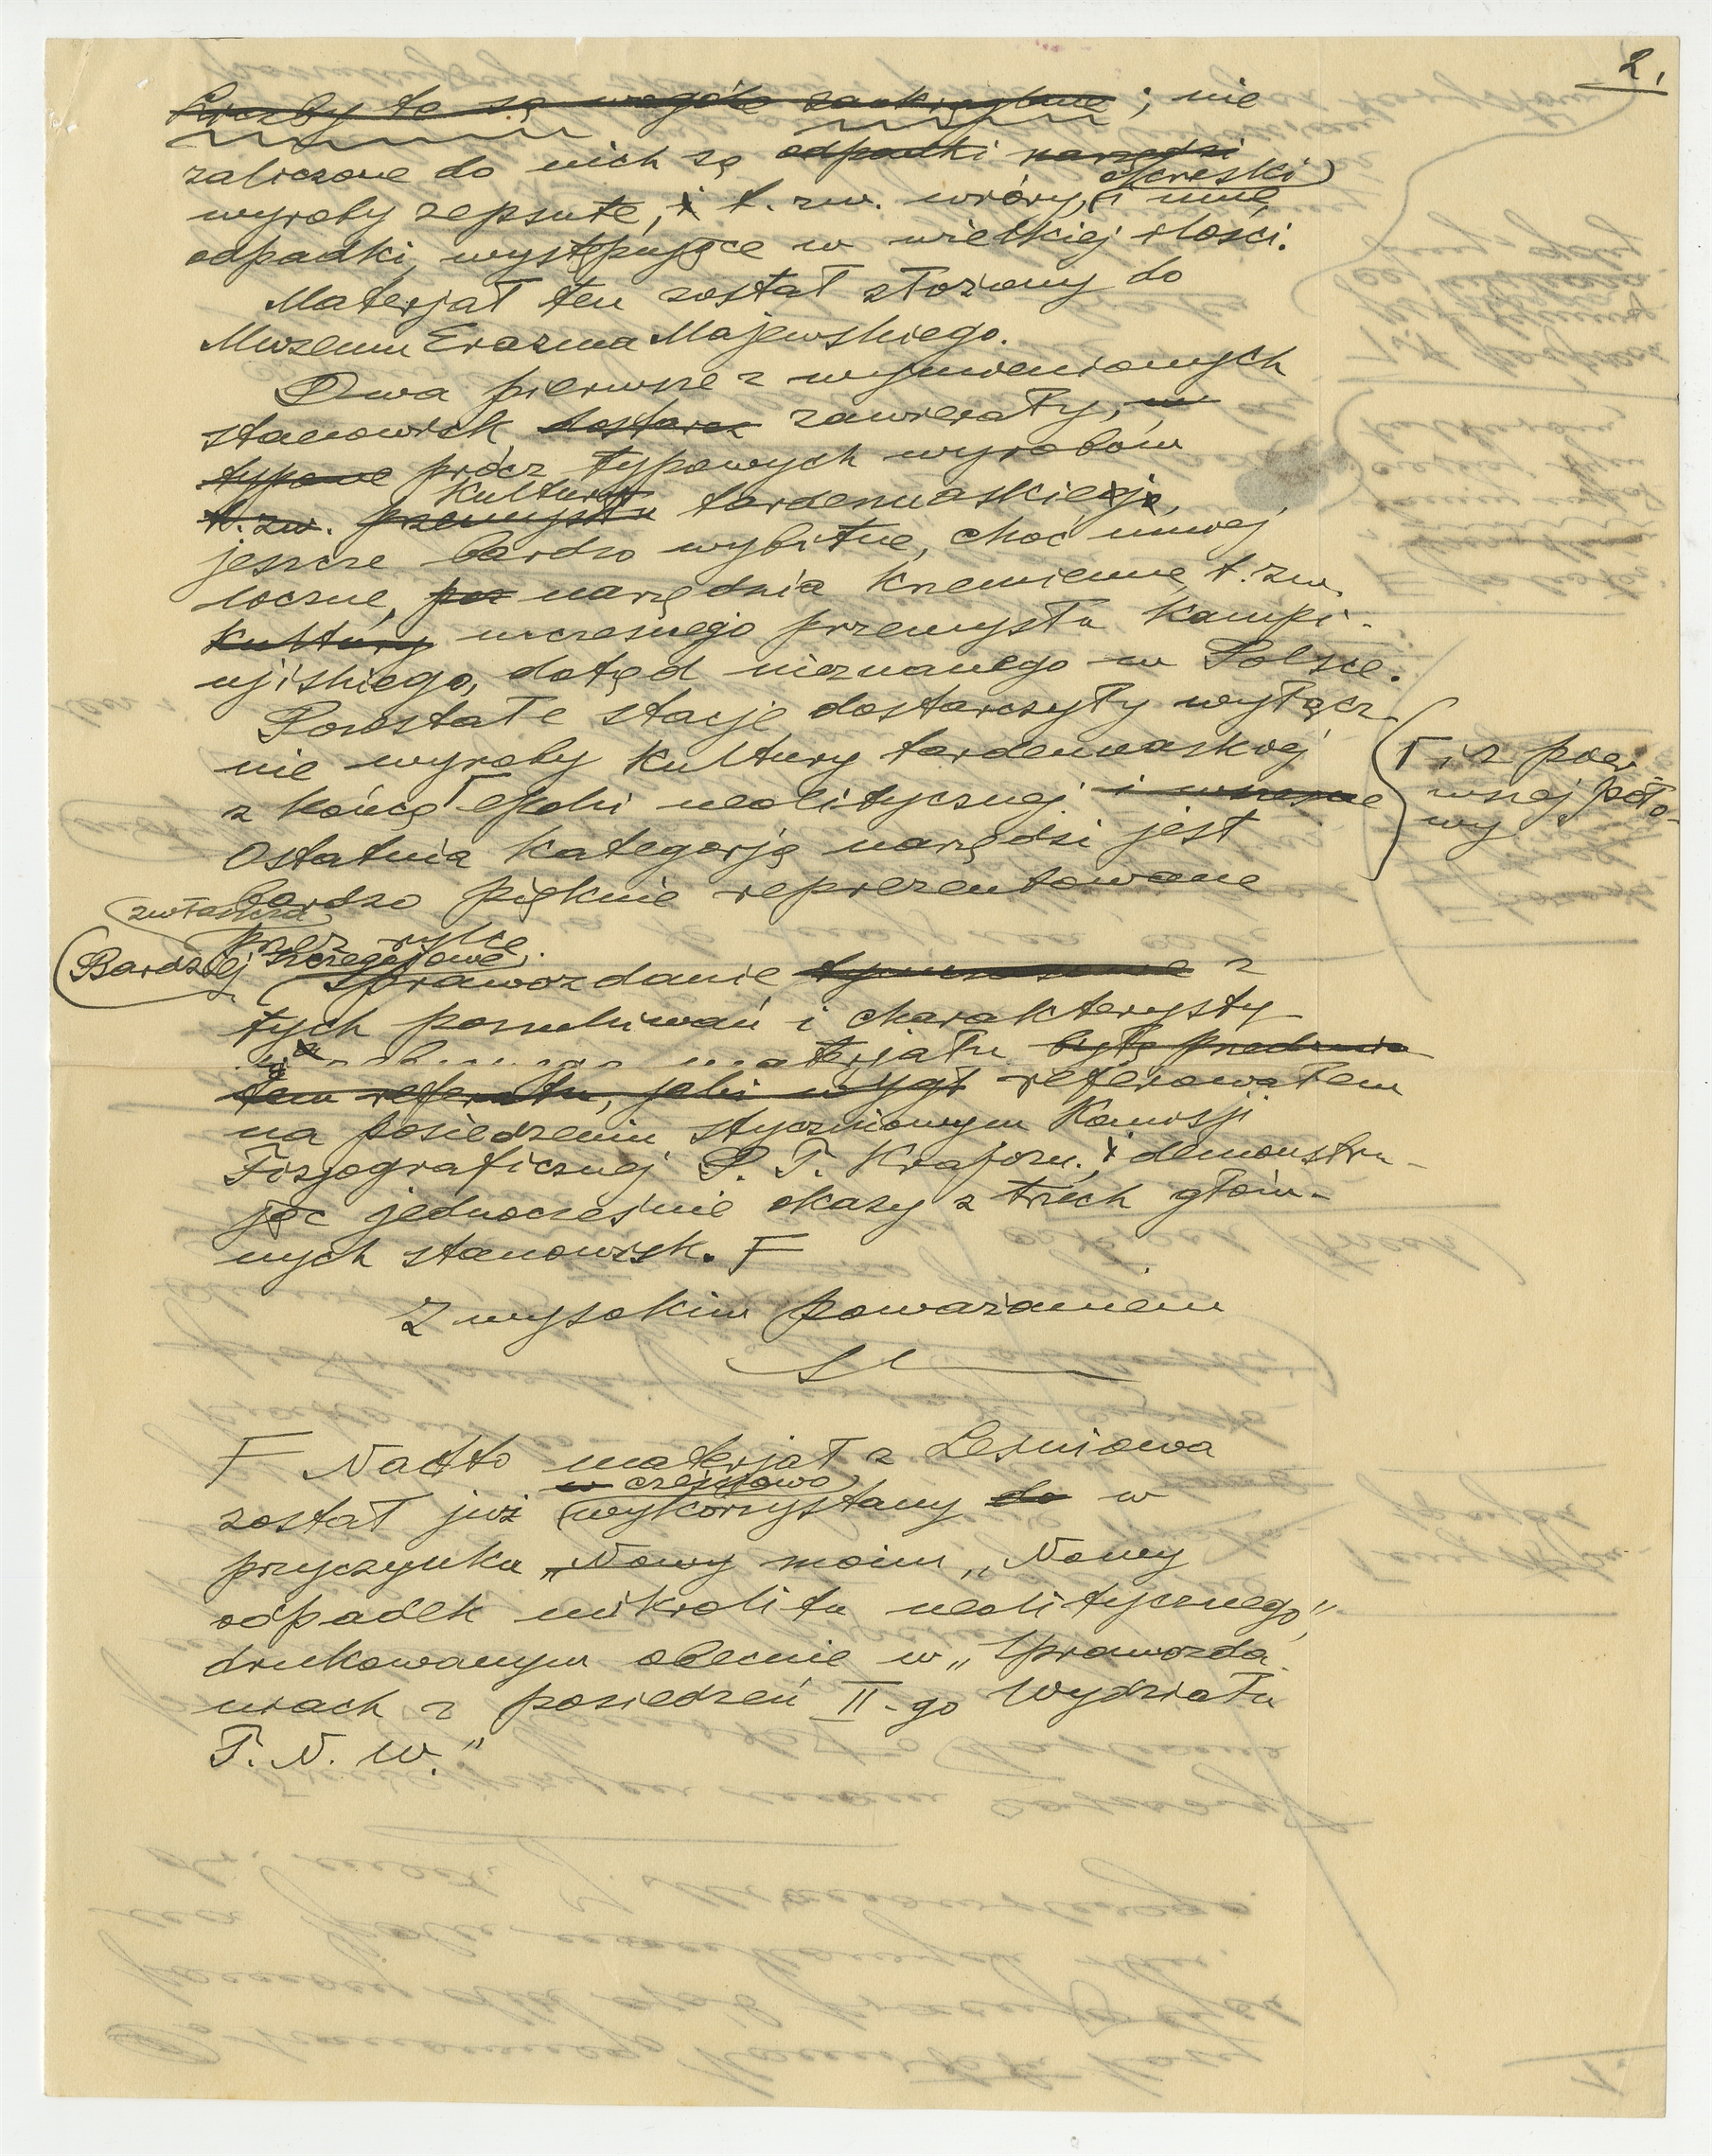 2.
Liczby te są wogóle zaokrąglone; nie
zaliczone do nich są odpadki narzędzi
wyroby zepsute, i t. zw. wióry, okrzeski i inne
odpadki, występujące w wielkiej ilości.
Materjał ten został złożony do
Muzeum Erazma Majewskiego.
Dwa pierwsze z wymienionych
stanowisk dostarcz zawierały, w
typowe prócz typowych wyrobów
t. zw. przemysłu kultury tardenuaskiej,
jeszcze bardzo wybitne, choć mniej
liczne, narzędzia krzemienne t. zw.
kultury wczesnego przemysłu kampi-
njiskiego, dotąd nieznanego w Polsce.
Pozostałe stacje dostarczyły wyłącz-
nie wyroby kultury tardenuaskiej
z końca Γ epoki neolitycznej i wczesne
Γ i z pier
wszej poło-
wy
Ostatnia kategorja narzędzi jest
bardzo pięknie reprezentowane
zwłaszcza przez rylce.
Bardziej szczegółowe sprawozdanie tymczasowe z
tych poszukiwań i charakterysty
materjału było przedmio
tem referatu, jaki wygł referowałem
na posiedzeniu styczniowym Komisji
Fizjograficznej P. T. Krajozn. i demonstru-
jąc jednocześnie okazy z trzech głów-
nych stanowisk. F
Z wysokim poważaniem
F Nadto materjał z Leśniowa
został już w częściowo wykorzystany do w
przyczynku „Nowy moim „Nowy
odpadek mikrolitu neolitycznego",
drukowanym obecnie w „Sprawozda
niach z posiedzeń II-go Wydziału
T. N. W."